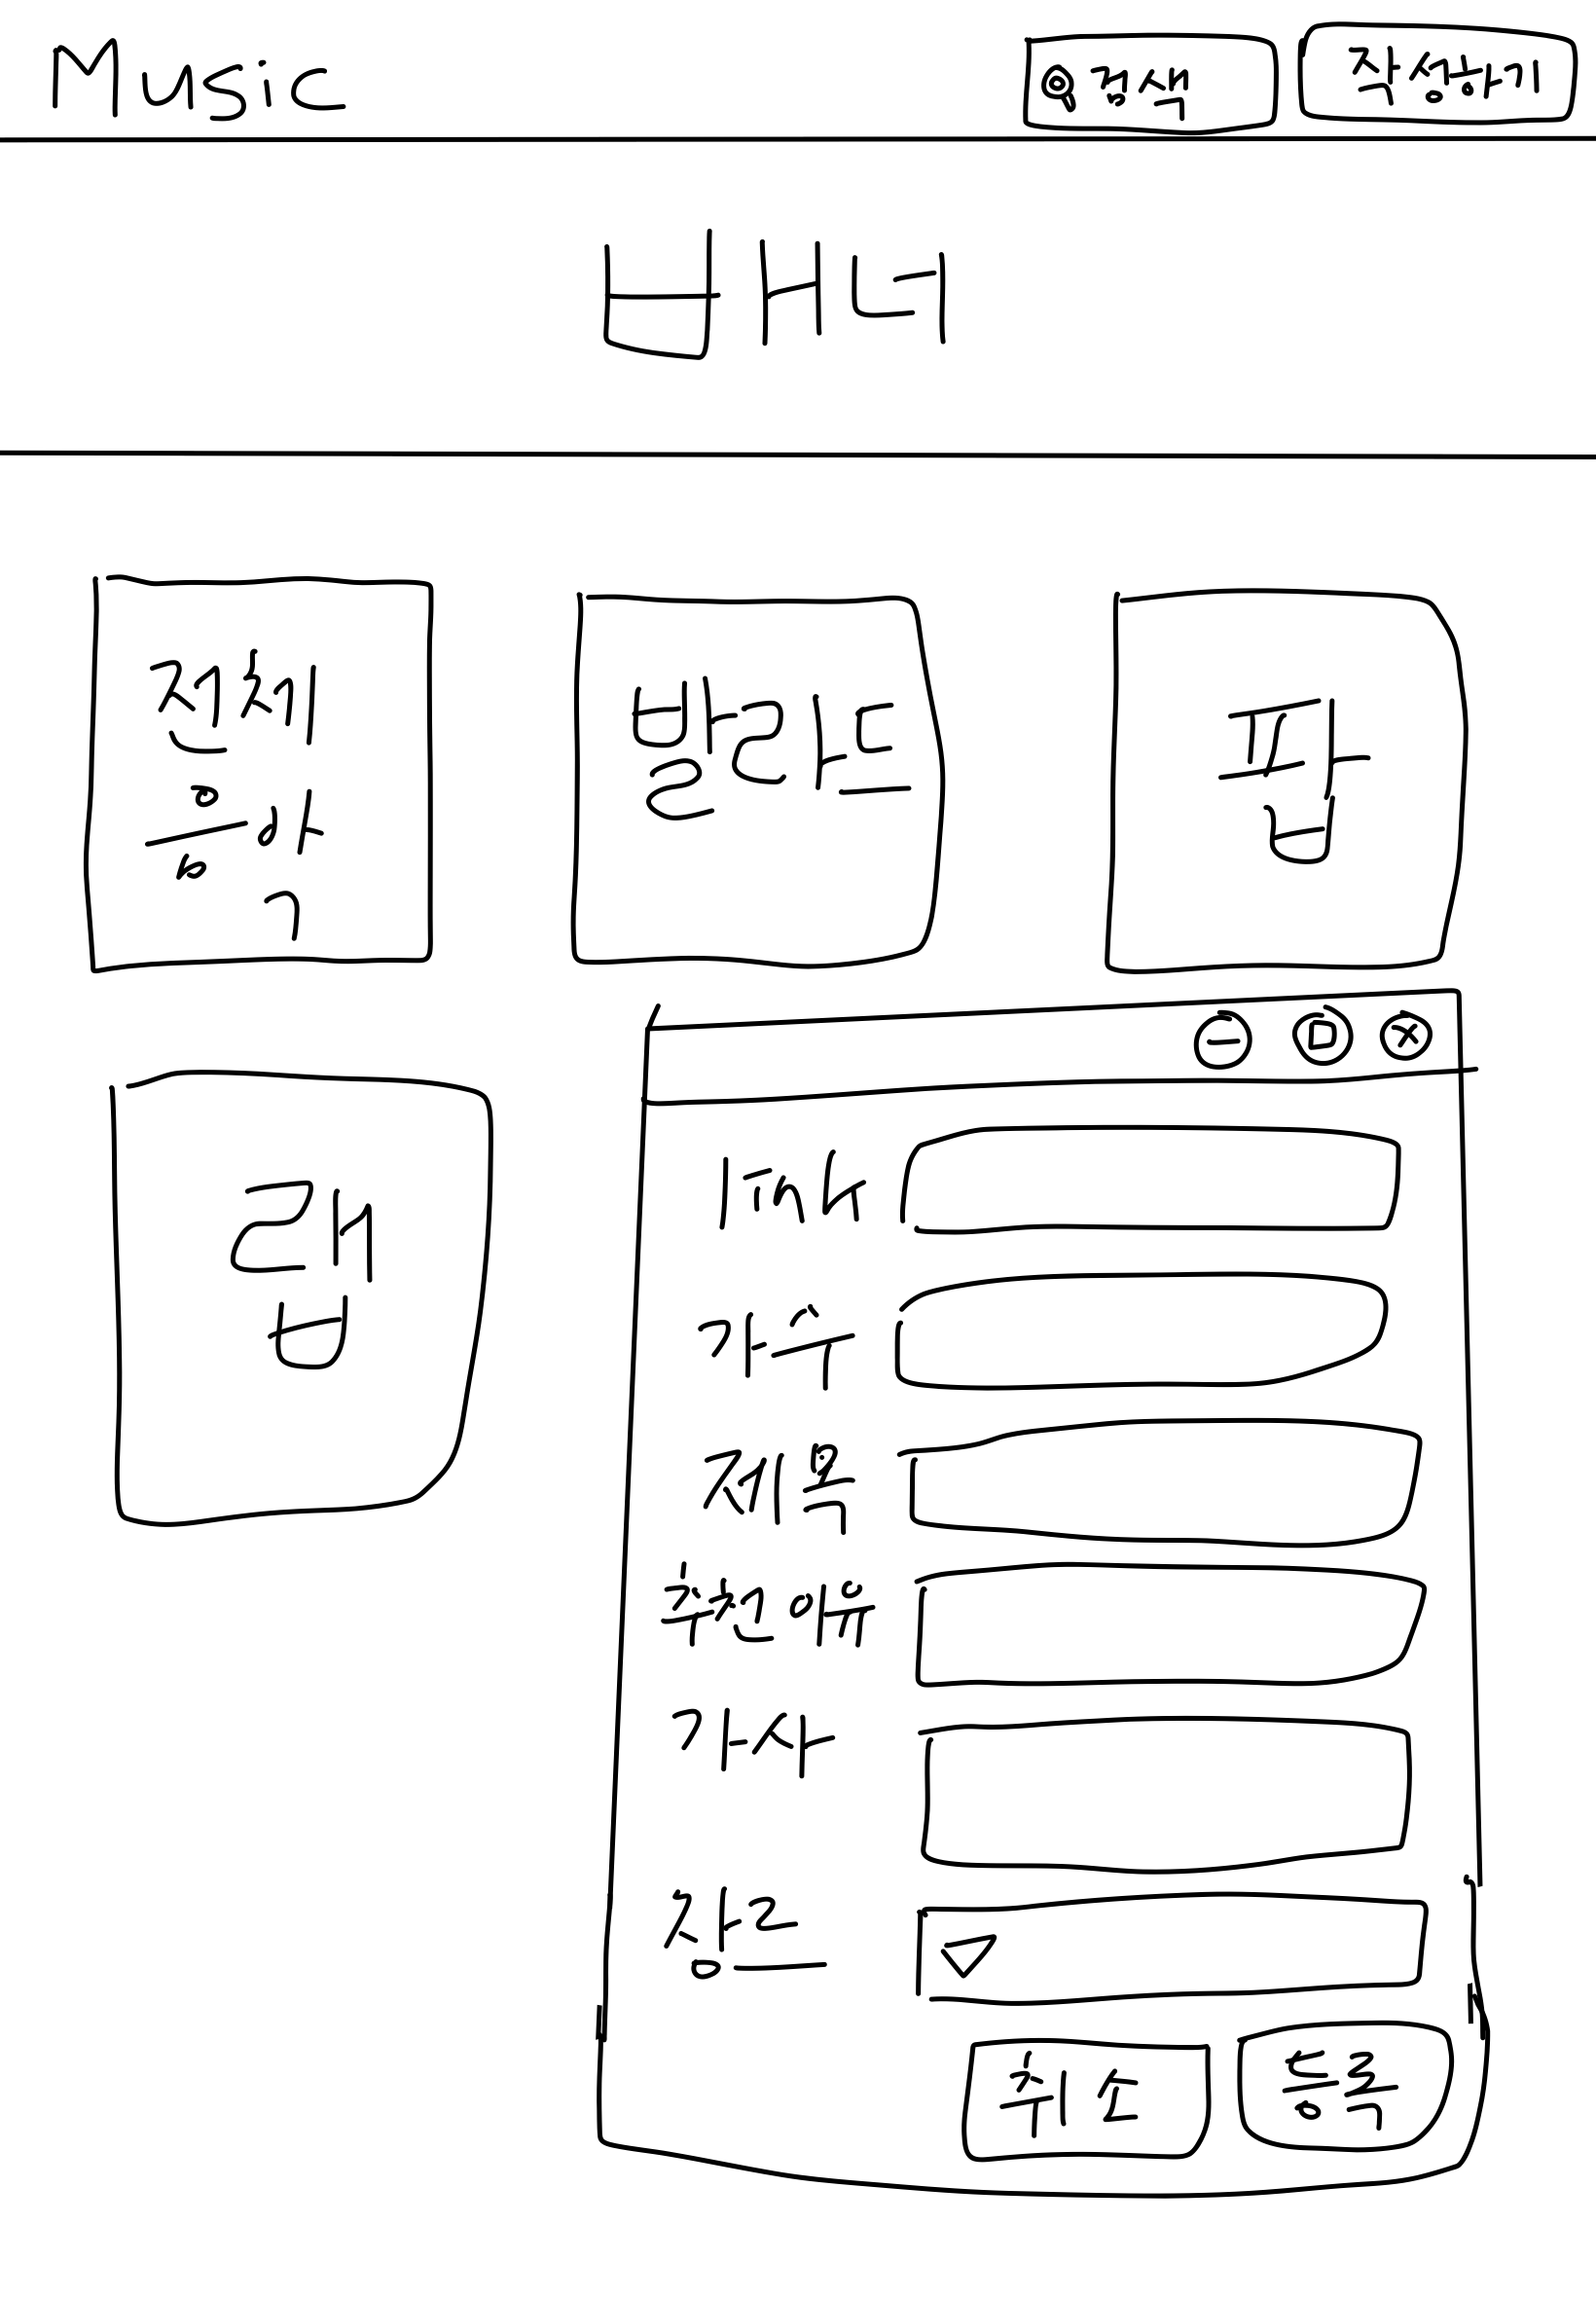 Music
검색
작성하기
배너
전체
음악
발라드
팝
랩
link
가수
제목
추천이유
가사
장르
취소
등록